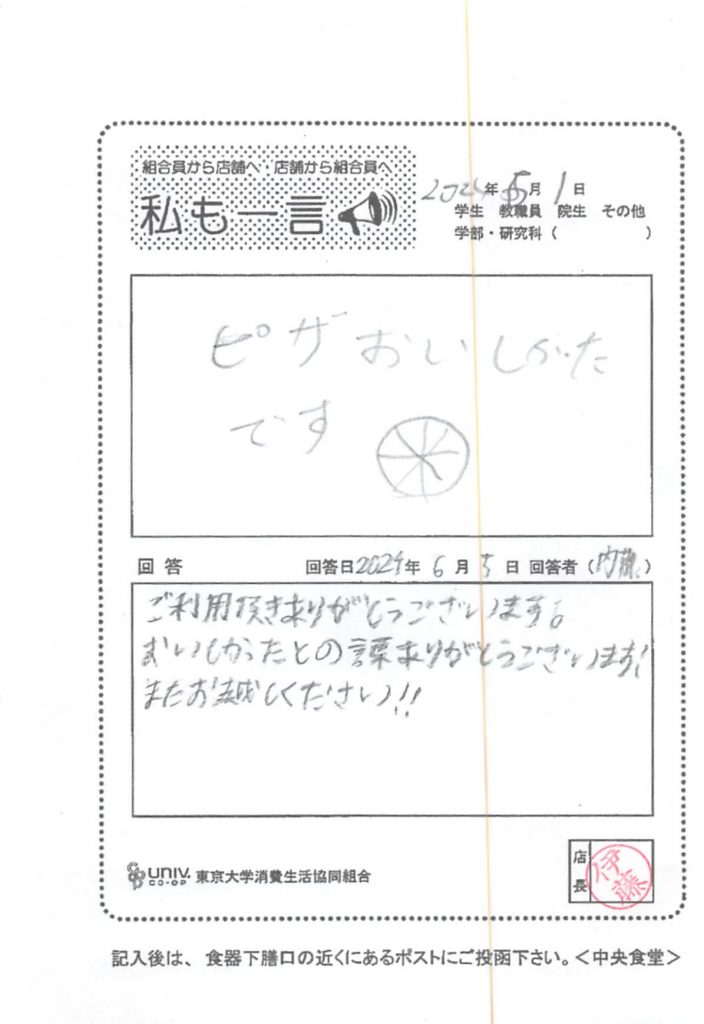 組合員から店舗へ・店舗から組合員へ
私も一言
2024年 5月 1日
学生 教職員 院生 その他
学部・研究科( )
ピザおいしかった
です
回答 回答日2024年 6月 5日 回答者(内藤)
ご利用頂きありがとうございます。
おいしかったとの言葉ありがとうございます!
またお越しください!!
UNIV. CO-OP 東京大学消費生活協同組合
店長 伊藤
記入後は、食器下膳口の近くにあるポストにご投函下さい。<中央食堂>